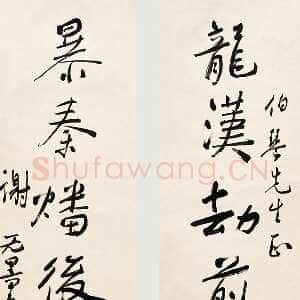 伯先生正
龍漢劫前
暴秦燔後
謝无量
Shufawang.CN